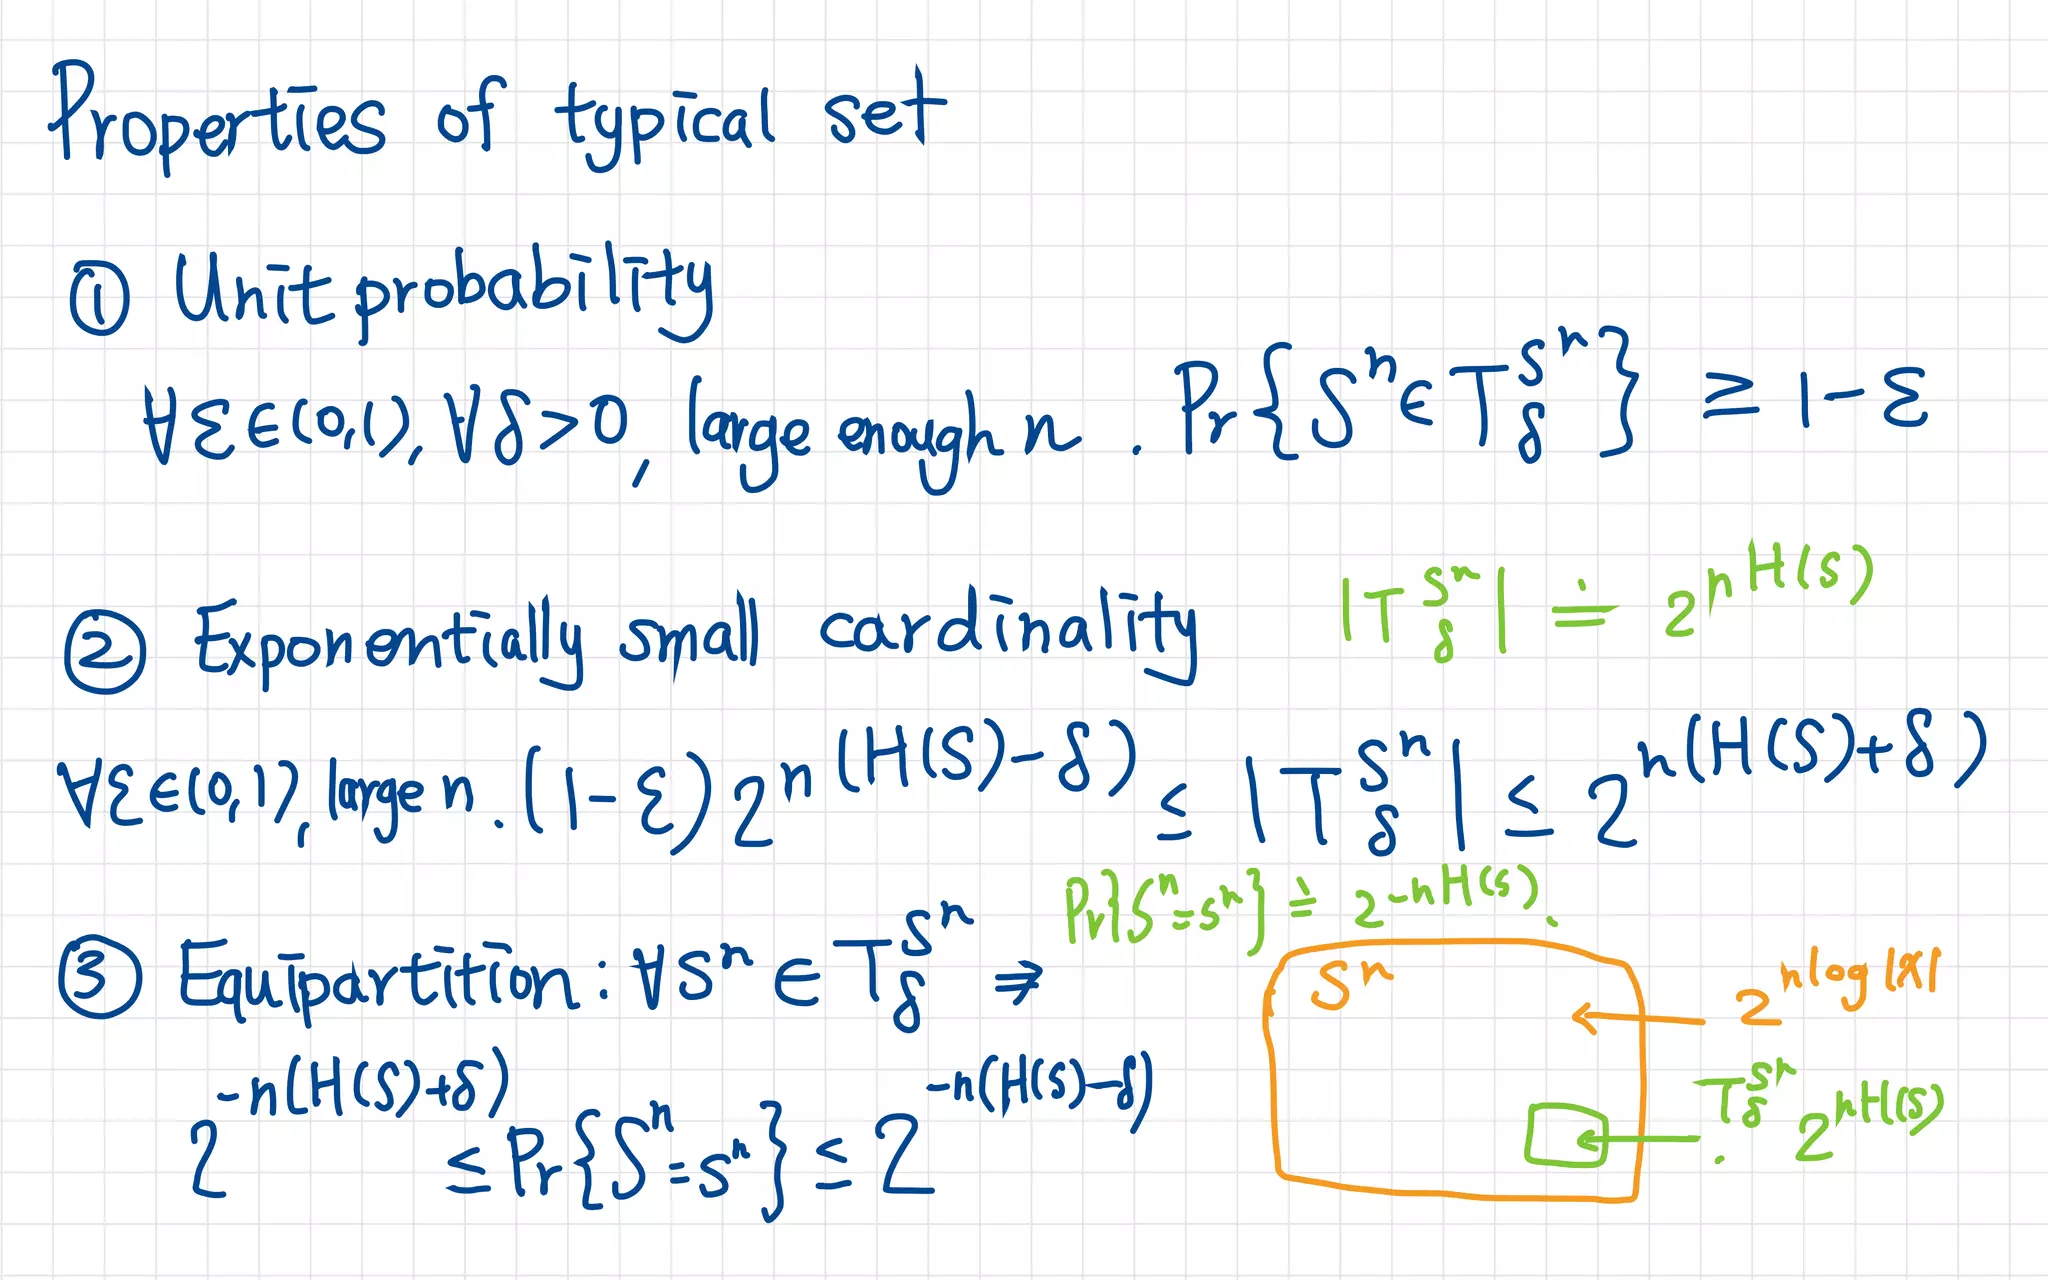 Properties of typical set
① Unit probability
∀ε∈(0,1), ∀δ>0, large enough n . Pr{Sⁿ∈T_δ^{Sⁿ}} ≥ 1-ε
② Exponentially small cardinality |T_δ^{Sⁿ}| ≐ 2^{nH(S)}
∀ε∈(0,1), large n. (1-ε)2^{n(H(S)-δ)} ≤ |T_δ^{Sⁿ}| ≤ 2^{n(H(S)+δ)}
Pr{Sⁿ=sⁿ} ≐ 2^{-nH(S)}.
③ Equipartition: ∀sⁿ ∈ T_δ^{Sⁿ} ⇒
2^{-n(H(S)+δ)} ≤ Pr{Sⁿ=sⁿ} ≤ 2^{-n(H(S)-δ)}
Sⁿ
2^{nlog|X|}
T_δ^{Sⁿ} 2^{nH(S)}